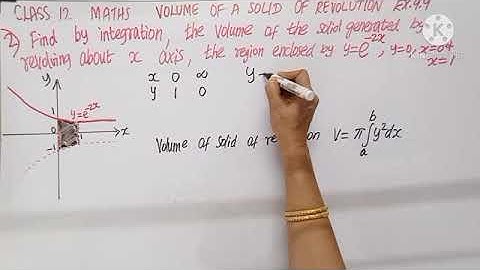 CLASS 12 MATHS VOLUME OF A SOLID OF REVOLUTION EX.9.9
2) Find by integration, the volume of the solid generated by
revolving about x axis, the region enclosed by y=e^-2x, y=0, x=0 &
x=1
y
x 0 ∞
y 1 0
y =
y=e^-2x
1
0
1
x
-1
Volume of solid of revolution V = π∫ₐᵇ y²dx